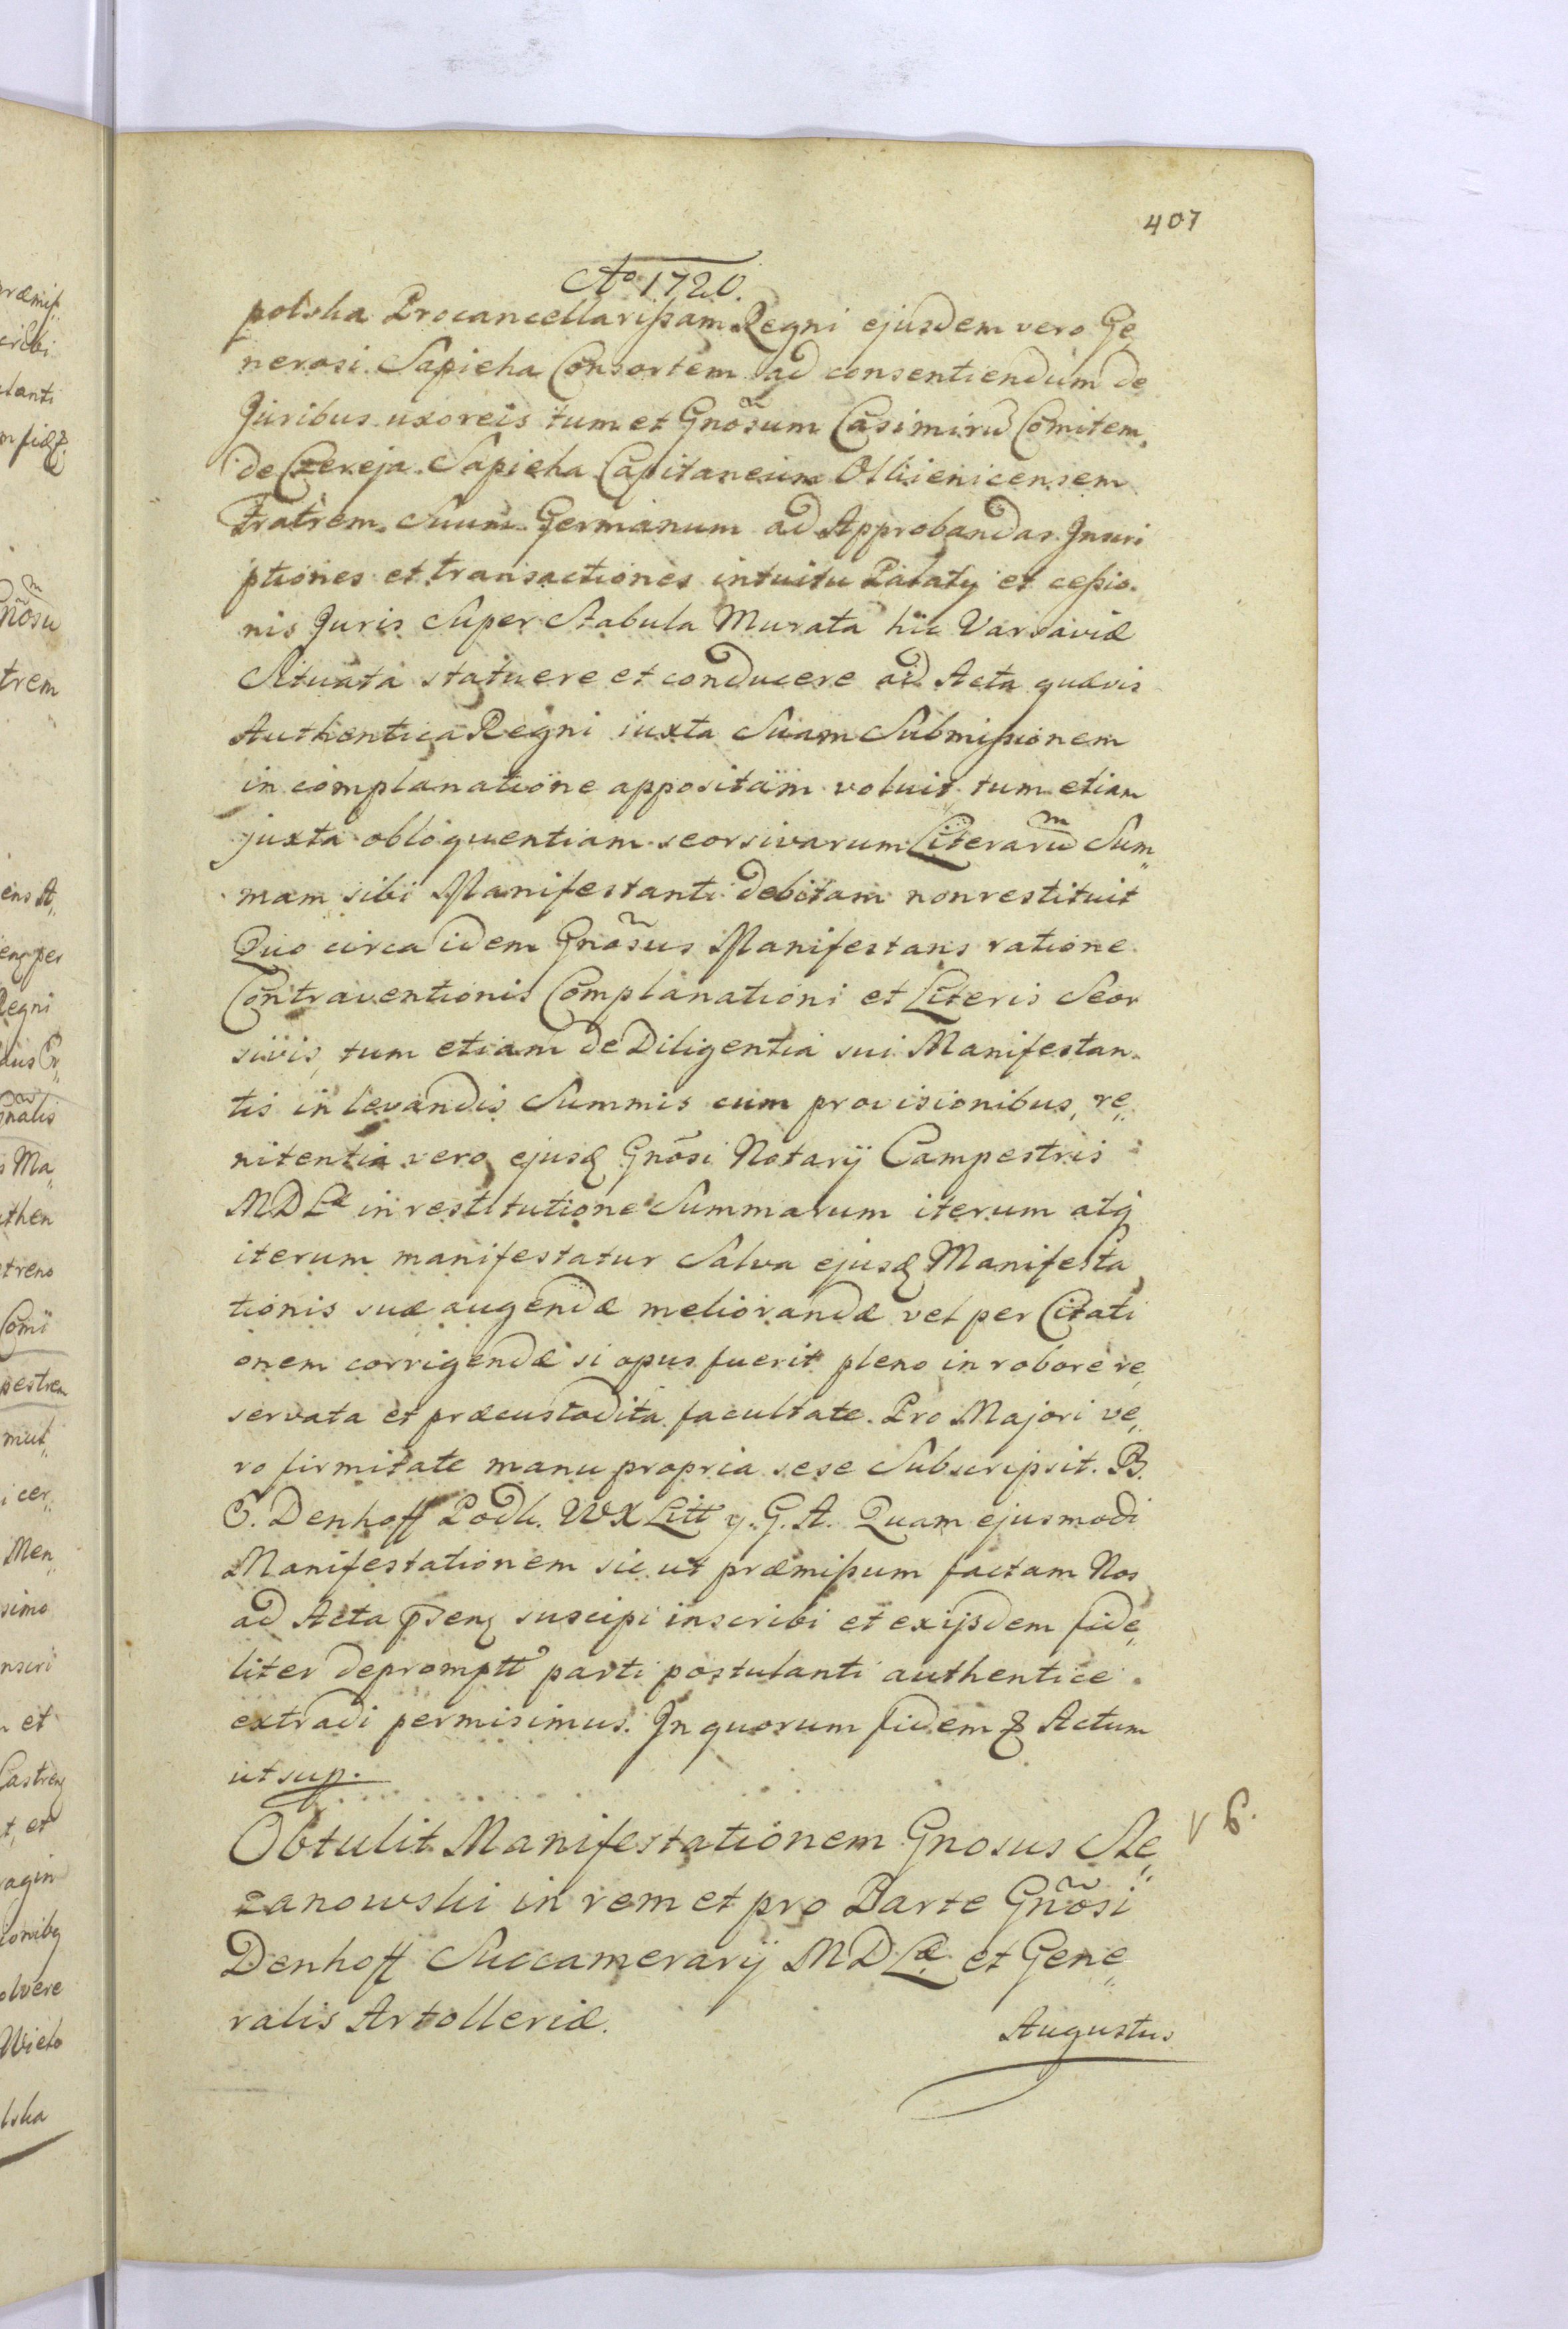 407
Ao 1720.
polska Procancellarißam Regni ejusdem vero Ge„
nerosi Sapieha Consortem ad consentiendum de
Juribus uxoreis tum et Gnõsum Casimirũ Comitem
de Czereja Sapieha Capitaneum Olkienicensem
Fratrem Suum Germanum ad Approbandas Inscri
ptiones et transactiones intuitu Palatÿ et ceßio„
nis Juris Super Stabula Murata hic Varsaviæ
Situata statuere et conducere ad Acta quævis
Authentica Regni iuxta Suam Submißionem
in complanatione appositam voluit tum etiam
juxta obloquentiam seorsivarum Literarũ Sum„
mam sibi Manifestanti debitam non restituit
Quo circa idem Gnõsus Manifestans ratione
Contraventionis Complanationi et Literis Seor
sivis, tum etiam de Diligentia sui Manifestan„
tis in levandis Summis cum provisionibus, re„
nitentia vero ejusđ Gnõsi Notarÿ Campestris
MDLæ in restitutione Summarum iterum atq
iterum manifestatur Salva ejusđ Manifesta
tionis suæ augendæ meliorandæ vel per Citati
onem corrigendæ si opus fuerit pleno in robore re„
servata et præcustodita facultate. Pro Majori ve„
ro firmitate manu propria sese Subscripsit. B.
G. Denhoff Podk. WX Litt y. G. A. Quam ejusmodi
Manifestationem sic ut præmißum factam Nos
ad Acta p̃senq suscipi inscribi et exijsdem fide„
liter depromptt parti postulanti authentice
extradi permisimus. In quorum fidem & Actum
ut sup.
Obtulit Manifestationem Gnosus Ste„
zanowski in rem et pro Parte Gnõsi
Denhoff Succamerarÿ MDLæ et Gene„
ralis Artolleriæ.
Augustus